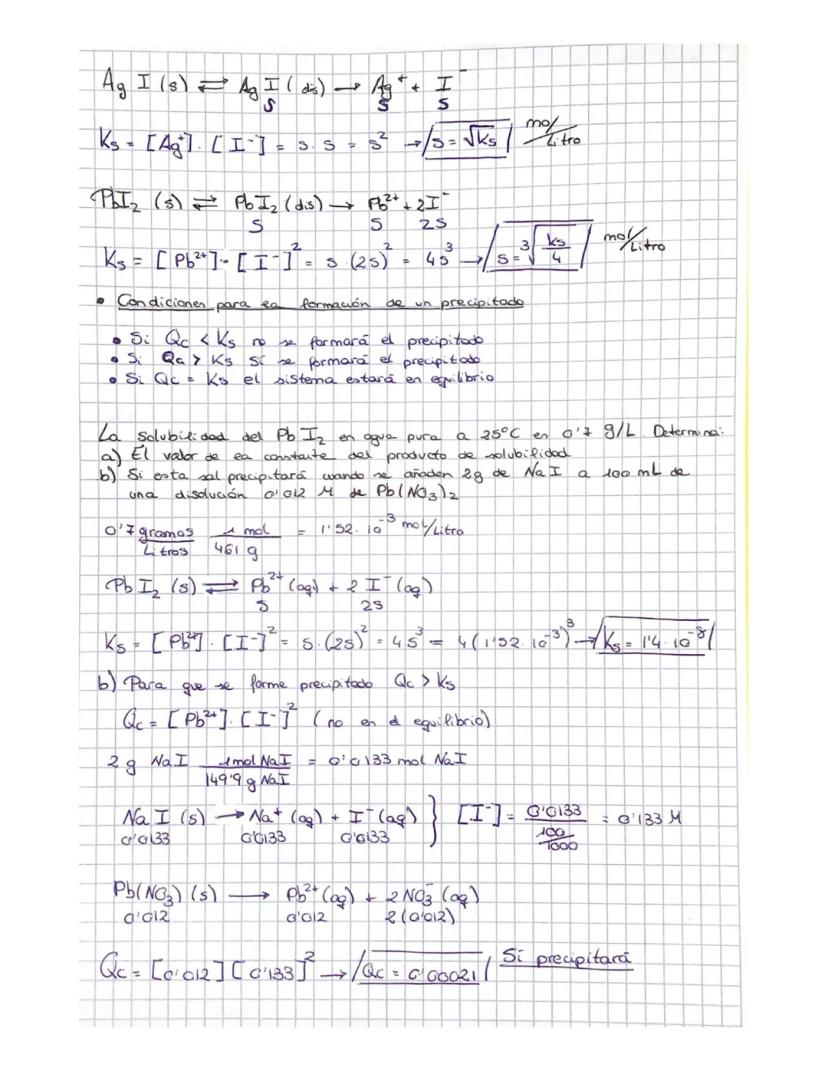 Ag I (s) ⇌ Ag I (dis) → Ag⁺ + I⁻
S S S
Ks = [Ag⁺]. [I⁻] = s. s = s² → s = √Ks mol/Litro
PbI₂ (s) ⇌ Pb I₂ (dis) → Pb²⁺ + 2I⁻
S S 2S
Ks = [Pb²⁺]·[I⁻]² = s (2s)² = 4s³ → s = ³√(Ks/4) mol/Litro
• Condiciones para la formación de un precipitado
• Si Qc < Ks no se formará el precipitado
• Si Qc > Ks Sí se formará el precipitado
• Si Qc = Ks el sistema estará en equilibrio
La solubilidad del Pb I₂ en agua pura a 25°C es 0'7 g/L Determina:
a) El valor de la constante del producto de solubilidad
b) Si esta sal precipitará cuando se añaden 2g de NaI a 100 mL de
una disolución 0'012 M de Pb(NO₃)₂
0'7 gramos/Litros 1 mol/461 g = 1'52. 10⁻³ mol/Litro
Pb I₂ (s) ⇌ Pb²⁺ (aq) + 2 I⁻ (aq)
S 2S
Ks = [Pb²⁺]. [I⁻]² = s. (2s)² = 4s³ = 4(1'52. 10⁻³)³ → Ks = 1'4. 10⁻⁸
b) Para que se forme precipitado Qc > Ks
Qc = [Pb²⁺]. [I⁻]² (no en el equilibrio)
2 g NaI 1 mol NaI/149'9 g NaI = 0'0133 mol NaI
Na I (s) → Na⁺ (aq) + I⁻ (aq) } [I⁻] = 0'0133/(100/1000) = 0'133 M
0'0133 0'0133 0'0133
Pb(NO₃) (s) → Pb²⁺ (aq) + 2 NO₃⁻ (aq)
0'012 0'012 2(0'012)
Qc = [0'012] [0'133]² → Qc = 0'00021 Sí precipitará